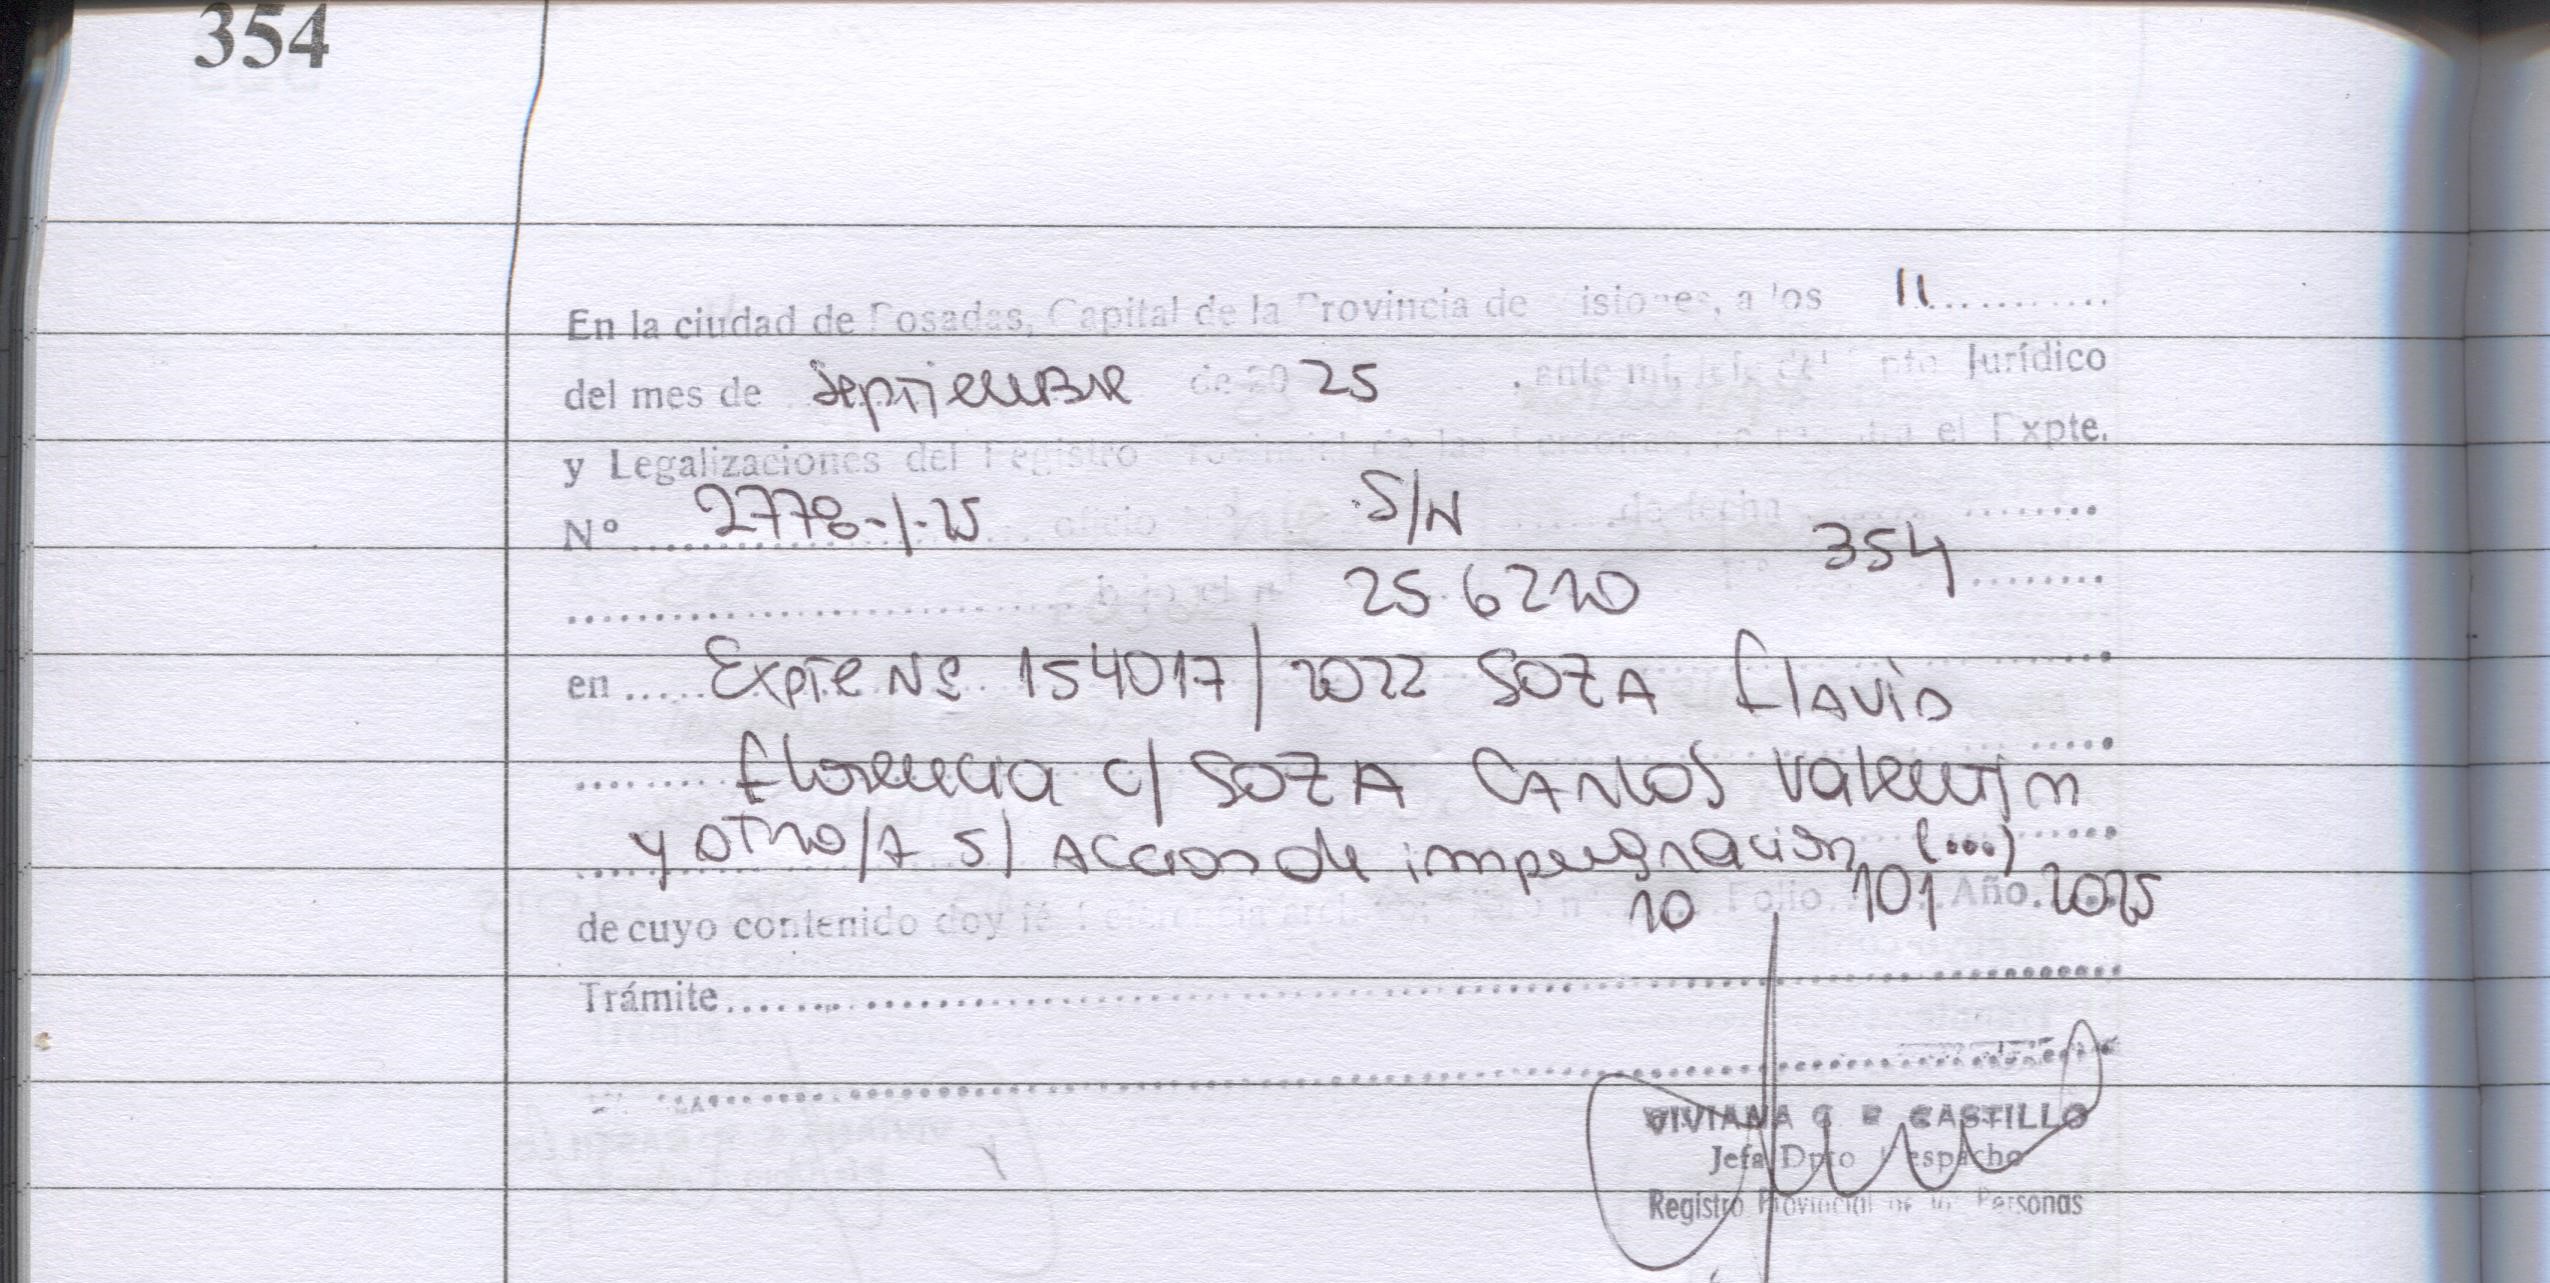 354
En la ciudad de Posadas, Capital de la Provincia de Misiones, a los 11
del mes de septiembre de 20 25, ante mi, Jefe del Dpto Jurídico
y Legalizaciones del Registro Provincial de las Personas, el Expte.
Nº 2778-1-25 oficio Nº S/N de fecha
bajo el nº 256210 354
en Expte Nº 154017/2022 SOZA Flavia
Florencia c/ SOZA CARLOS Valentin
y otro/A s/ Accion de impugnación (...)
de cuyo contenido doy fé. 10 Folio 101 Año 2025
Trámite
VIVIANA G. CASTILLO
Jefa Dpto Despacho
Registro Provincial de las Personas